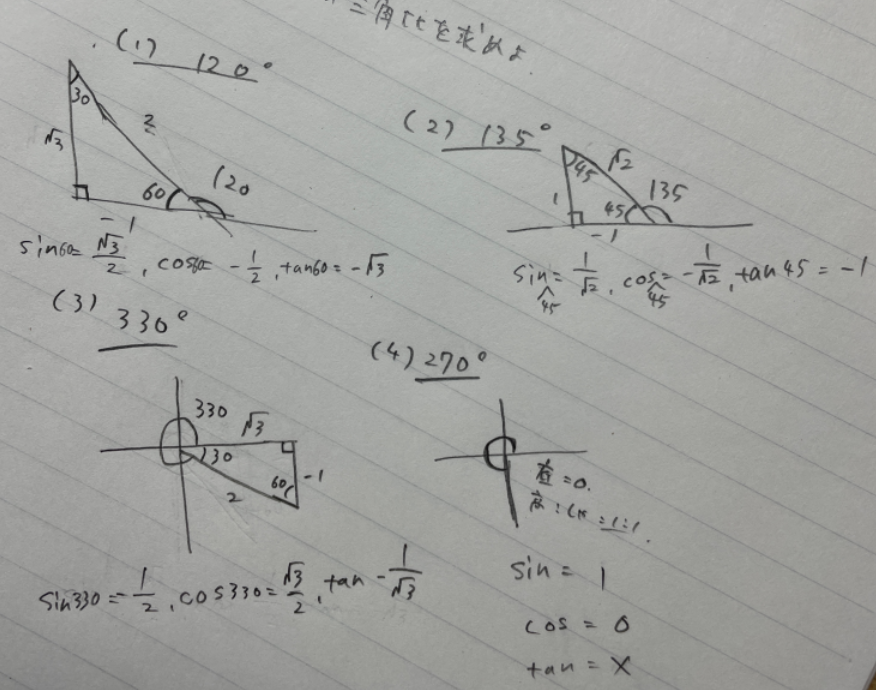 三角比を求めよ.
(1) 120°
30
2
√3
60 120
-1
sin60= √3/2 , cos60= -1/2 , tan60= -√3
(2) 135°
45 √2
1 45 135
-1
sin45= 1/√2 , cos45= -1/√2 , tan45 = -1
(3) 330°
330 √3
30
60 -1
2
sin330=-1/2 , cos330=√3/2 , tan -1/√3
(4) 270°
=0.
=1:1.
sin = 1
cos = 0
tan = ×